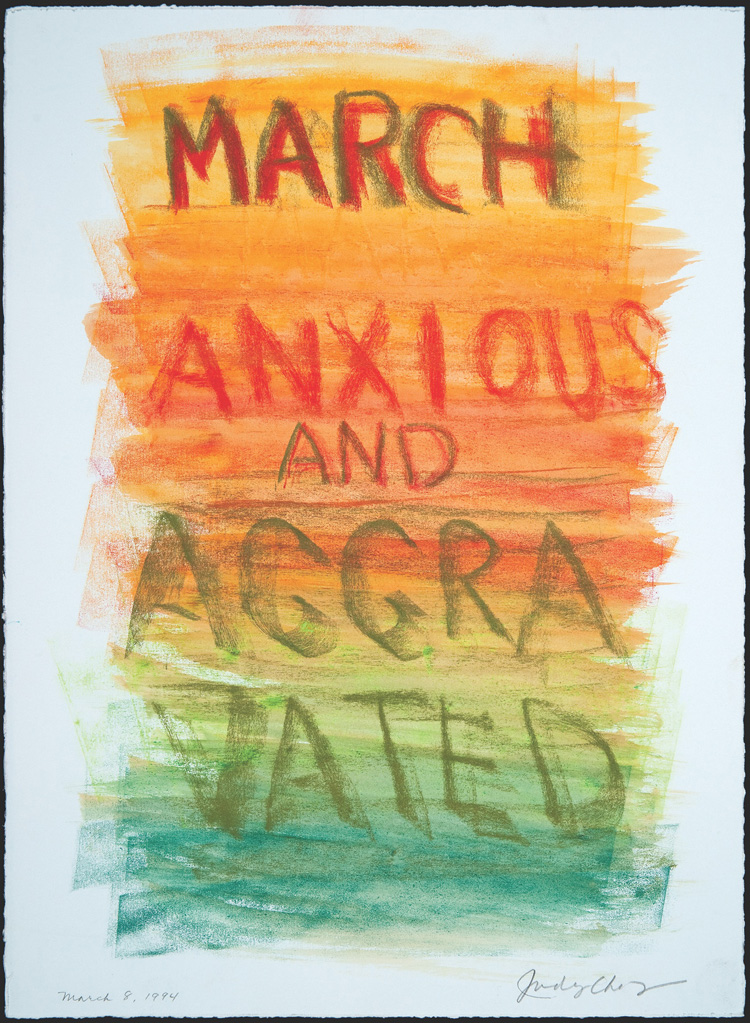 MARCH
ANXIOUS
AND
AGGRA
VATED
March 8, 1994
Judy Chicago